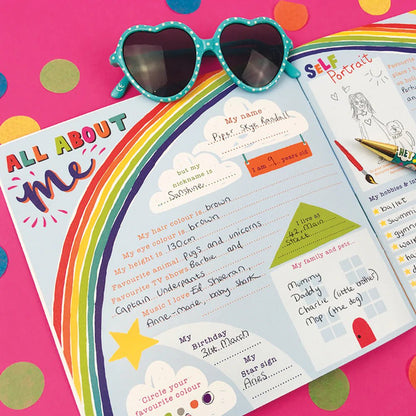 ALL ABOUT
Me
My name is
Piper Skye Randall
but my
nickname is
Sunshine
I am 9 years old
My hair colour is brown
My eye colour is brown
My height is 130cm
Favourite animal Pugs and unicorns
Favourite TV shows Barbie and
Captain Underpants
Music I love Ed Sheeran,
Anne-marie, baby shark
I live at
42, Main
Street
My family and pets...
Mummy
Daddy
Charlie (little brother)
Mop (the dog)
My Birthday
31st March
My
Star sign
Aries
Circle your
favourite colour
SELF
Portrait
My favourite
My hobbies
ballet
Summer
gymn